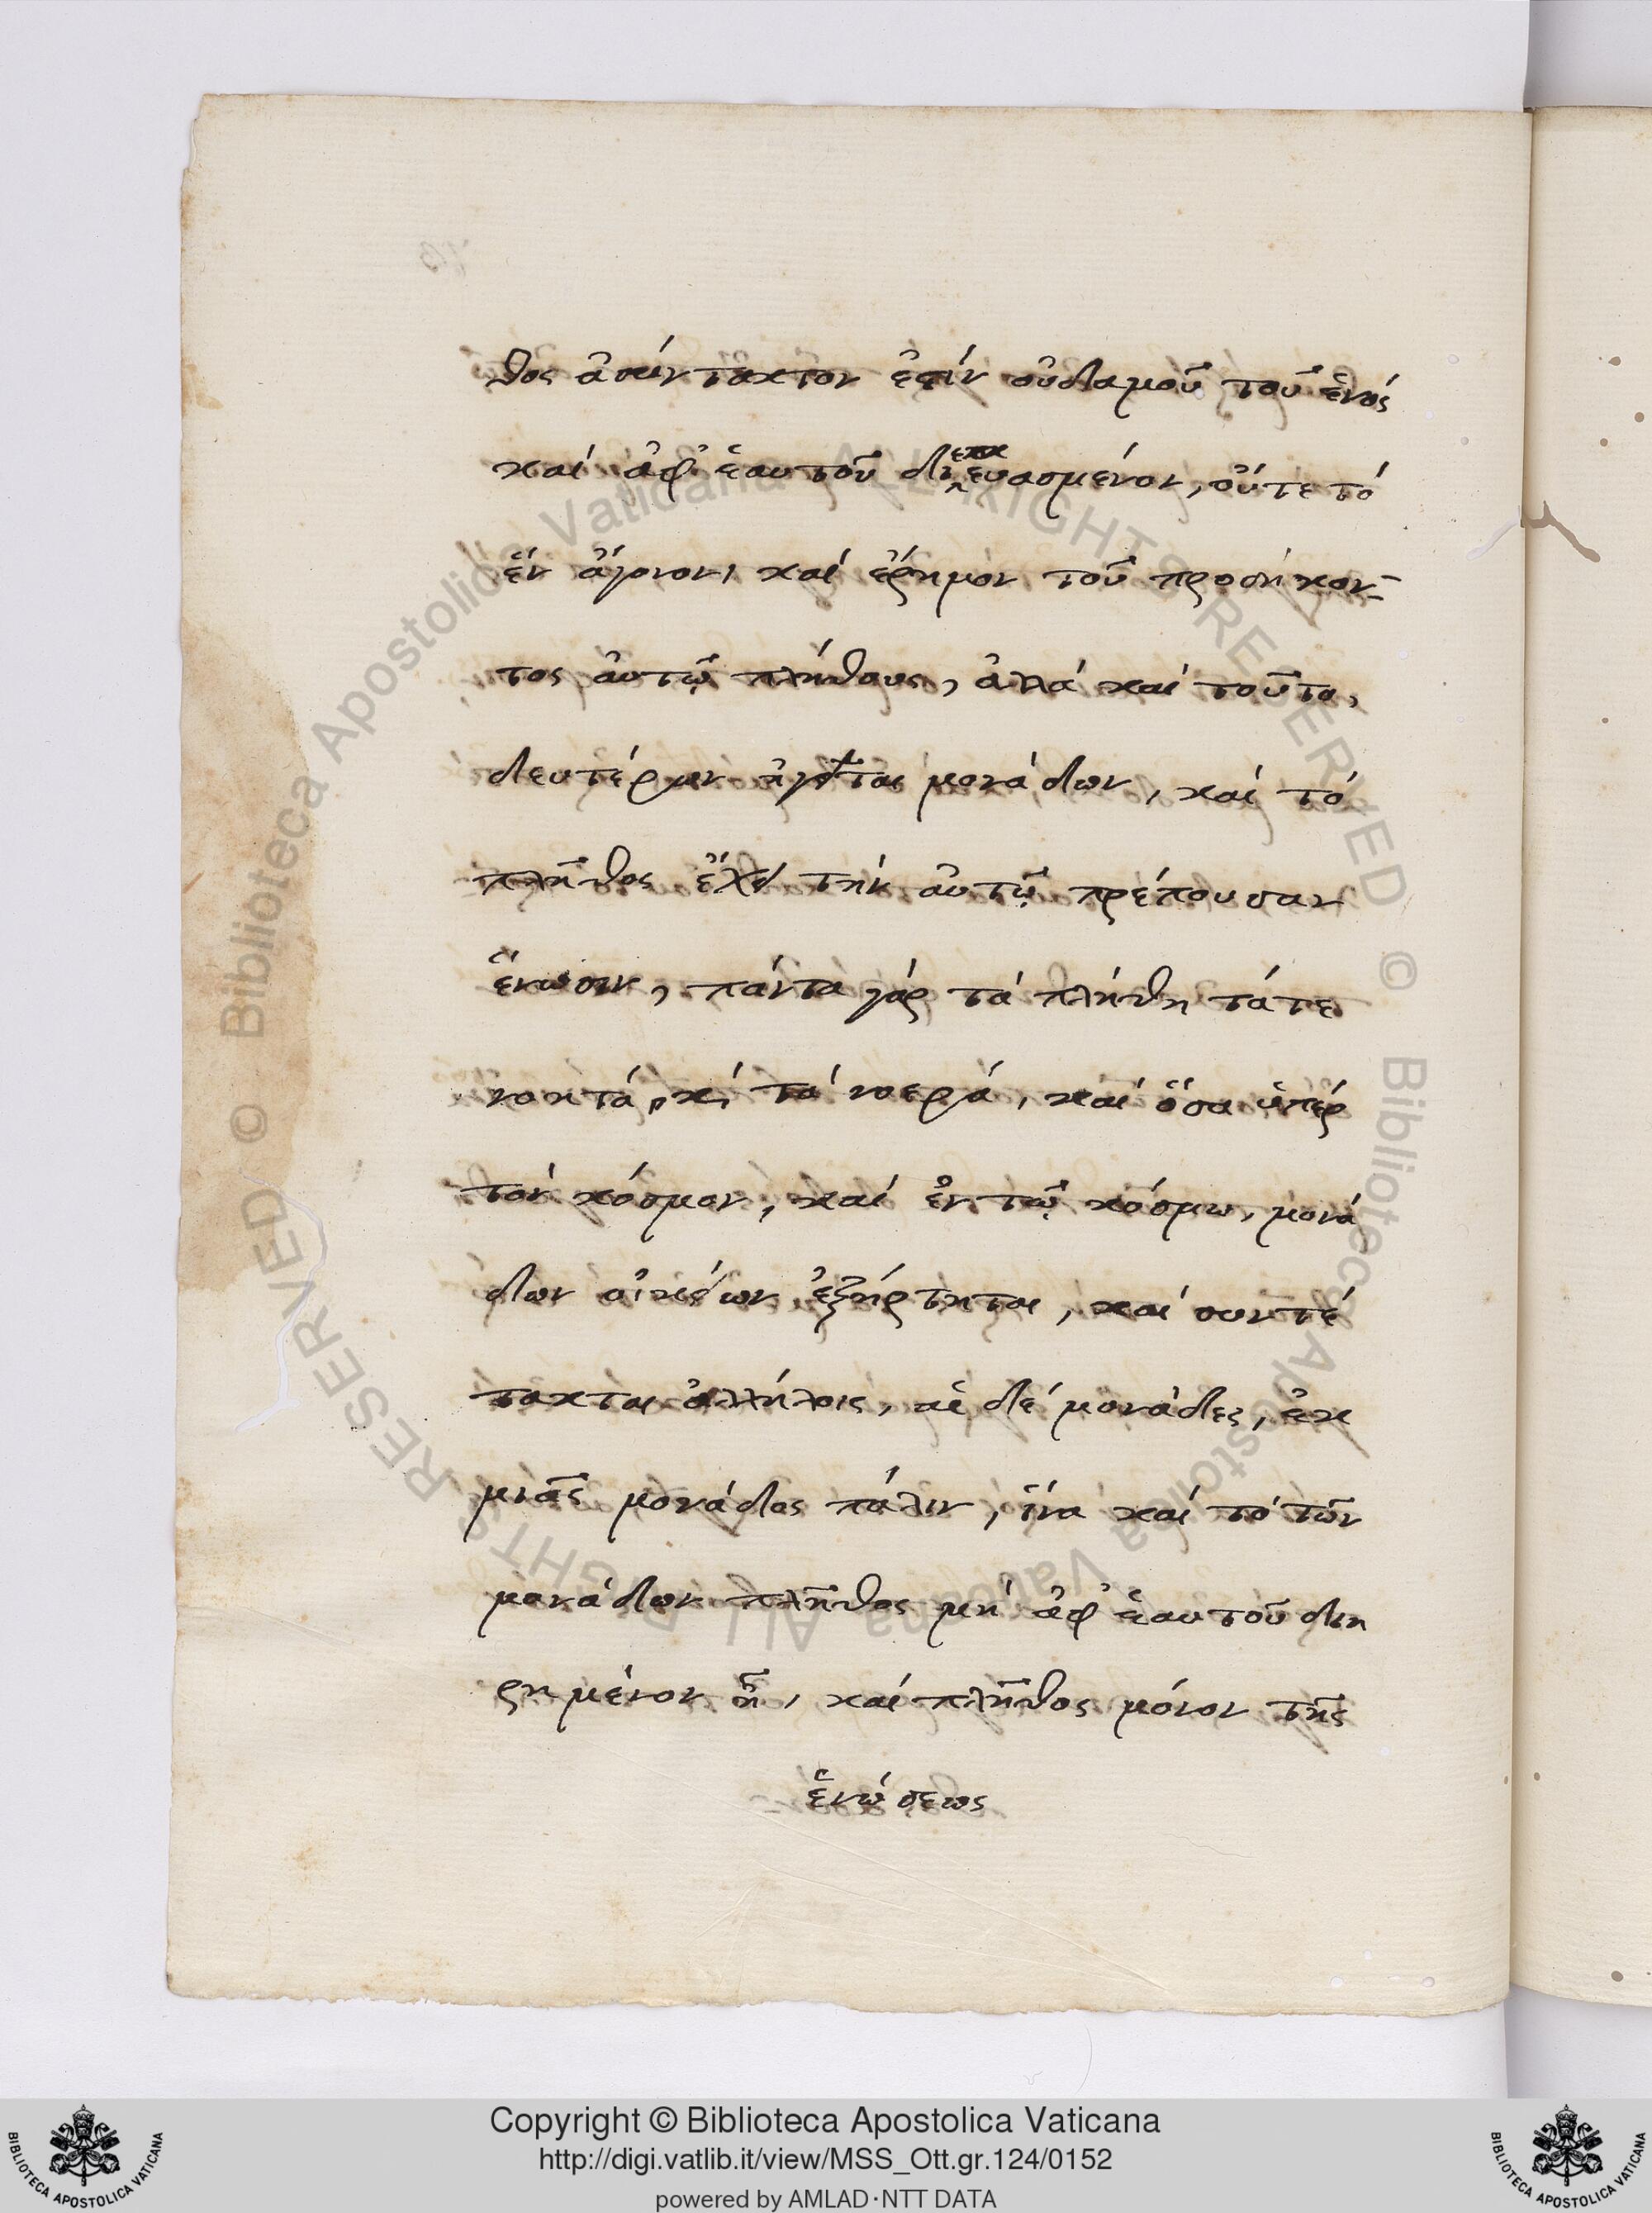 θος ἀσύντακτον ἐστίν οὐδαμοῦ τοῦ ἑνός
καί ἀφ' ἑαυτοῦ διεσπασμένον, οὔτε τό
ἕν ἄγονον, καί ἔρημον τοῦ προσήκον-
τος αὐτῷ πλήθους, ἀλλά καί τοῦτο,
δευτέρων ἡγεῖται μονάδων, καί τό
πλῆθος ἔχει τήν αὐτῷ πρέπουσαν
ἕνωσιν, πάντα γάρ τά πλήθη τάτε
νοητά, κ̀ τά νοερά, καί ὅσα ὑπέρ
τόν κόσμον, καί ἐν τῷ κόσμω, μονά
δων οἰκείων ἐξήρτηται, καί συντέ
τακται ἀλλήλοις, αἱ δέ μονάδες, ἐκ
μιᾶς μονάδος πάλιν, ἵνα καί τό τῶν
μονάδων πλῆθος μή ἀφ' ἑαυτοῦ διη
ρημένον ἦ, καί πλῆθος μόνον τῆς
ἑνώσεως
Copyright © Biblioteca Apostolica Vaticana
http://digi.vatlib.it/view/MSS_Ott.gr.124/0152
powered by AMLAD·NTT DATA
BIBLIOTECA APOSTOLICA VATICANA
BIBLIOTECA APOSTOLICA VATICANA
© Biblioteca Apostolica Vaticana ALL RIGHTS RESERVED © Biblioteca Apostolica Vaticana ALL RIGHTS RESERVED